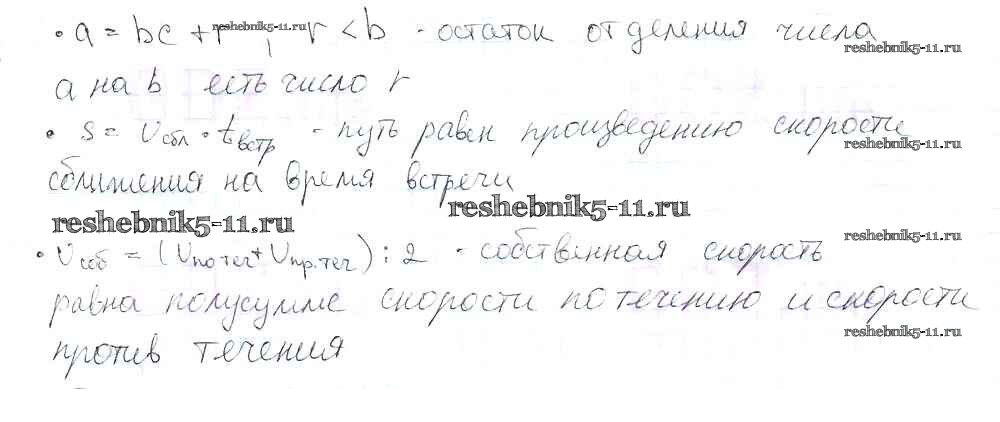 • a = bc + r, r < b - остаток от деления числа
reshebnik5-11.ru
reshebnik5-11.ru
a на b есть число r
• s = υсбл · tвстр - путь равен произведению скорости
reshebnik5-11.ru
сближения на время встречи
reshebnik5-11.ru
reshebnik5-11.ru
reshebnik5-11.ru
• υсоб = (υпо теч + υпр. теч) : 2 - собственная скорость
равна полусумме скорости по течению и скорости
reshebnik5-11.ru
против течения